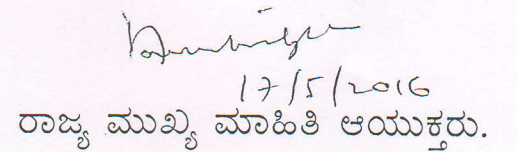 17/5/2016
ರಾಜ್ಯ ಮುಖ್ಯ ಮಾಹಿತಿ ಆಯುಕ್ತರು.